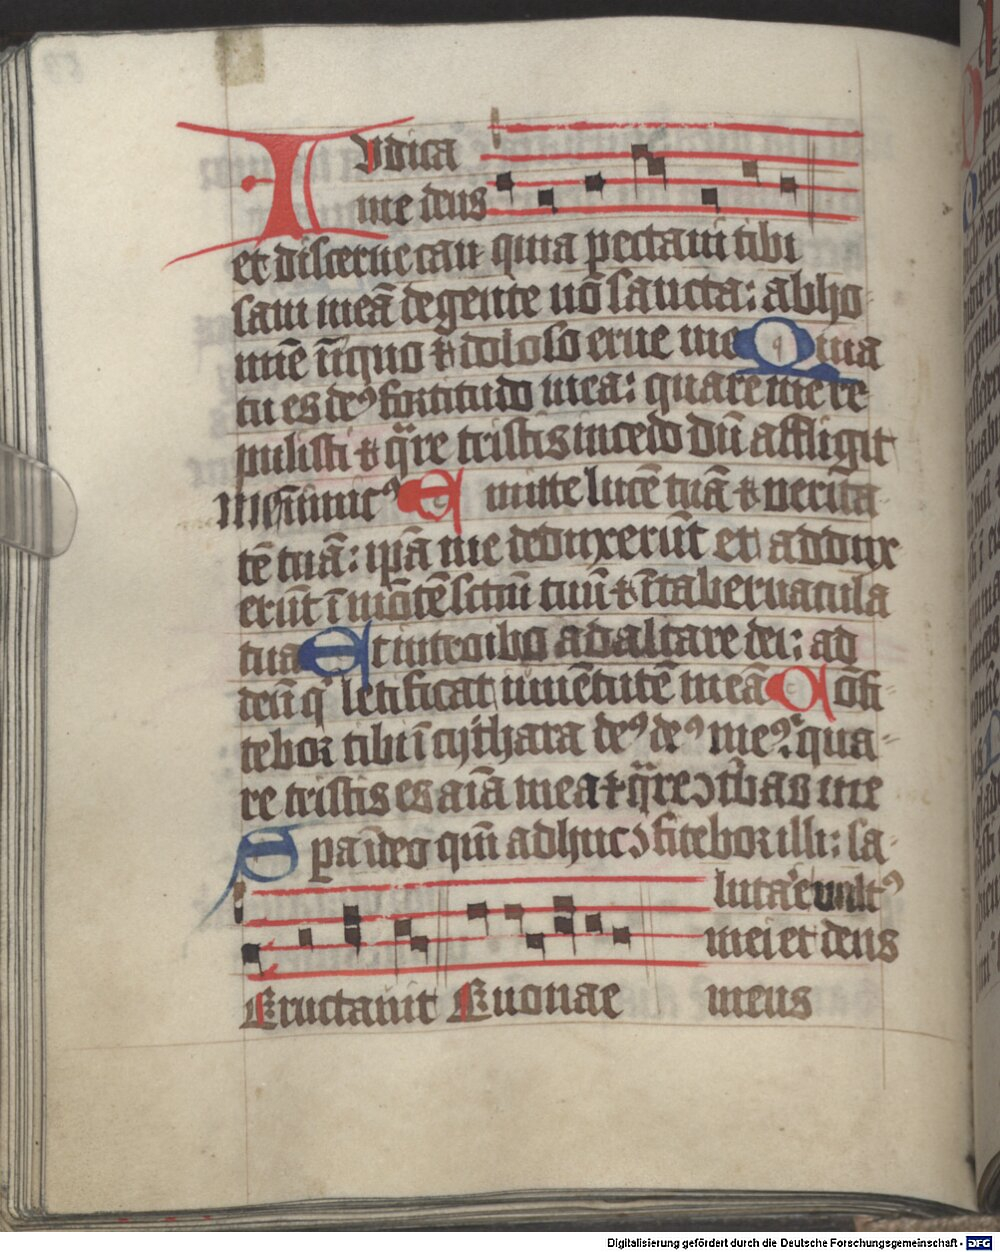 Iudica
me deus
et discerne cau quia expectaui tibi
sam meā de gente nō sancta: ab ho-
mīe īiquo ⁊ doloso erue me Quia
tu es deꝰ fortitudo mea: quare me re-
pulisti ⁊ qͣre tristis incedo dū affligit
me inimicꝰ Emitte lucē tuā ⁊ verita-
tē tuā: ip̄a me deduxerūt et addux-
erūt ī mōtē sc̄tm̄ tuū ⁊ ī tabernacula
tua Et introibo ad altare dei: ad
deū q̇ letificat iuuētutē meā Cōfi-
tebor tibi ī cythara deꝰ deꝰ meꝰ: qua-
re tristis es aīa mea ⁊ qͣre ↄturbas me
Spa ī deo qm̄ adhuc ↄfitebor illi: sa-
lutare vultꝰ
mei et deus
Eructauit Euouae meus
Digitalisierung gefördert durch die Deutsche Forschungsgemeinschaft - DFG